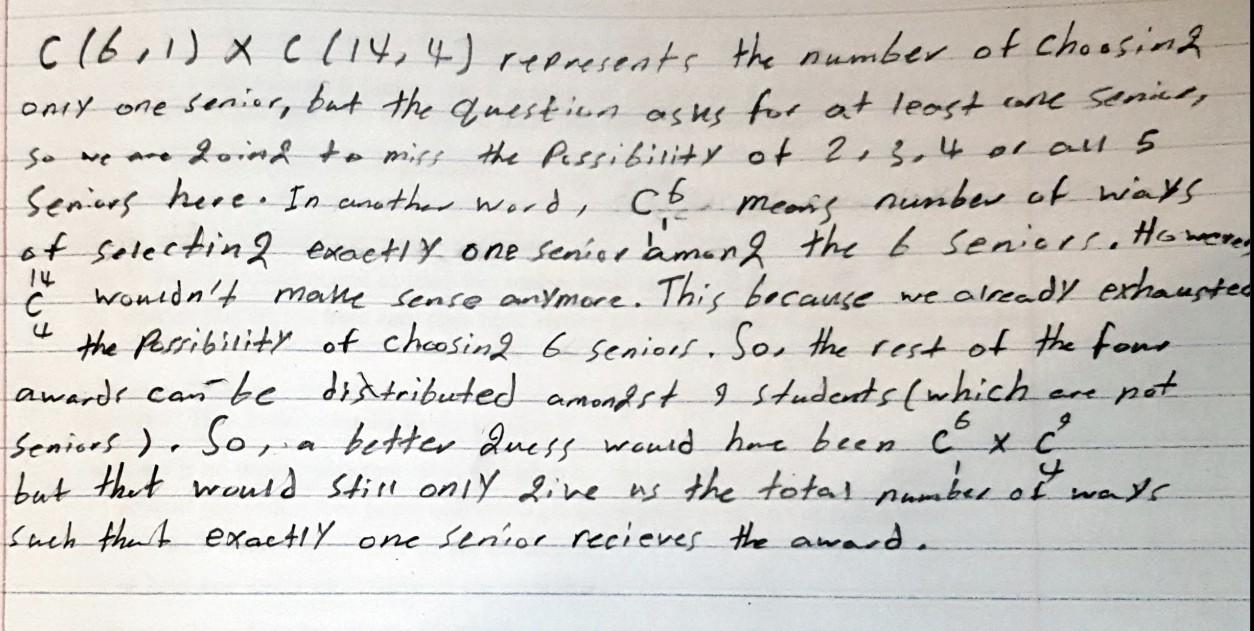 C(6,1) X C(14,4) represents the number of choosing
only one senior, but the question asks for at least one senior,
so we are going to miss the possibility of 2,3,4 or all 5
seniors here. In another word, C 6 1 means number of ways
of selecting exactly one senior among the 6 seniors. However,
14 C 4 wouldn't make sense anymore. This because we already exhausted
the possibility of choosing 6 seniors. So, the rest of the four
awards can be distributed amongst 9 students (which are not
seniors). So, a better guess would have been C 6 1 x C 9 4
but that would still only give us the total number of ways
such that exactly one senior recieves the award.